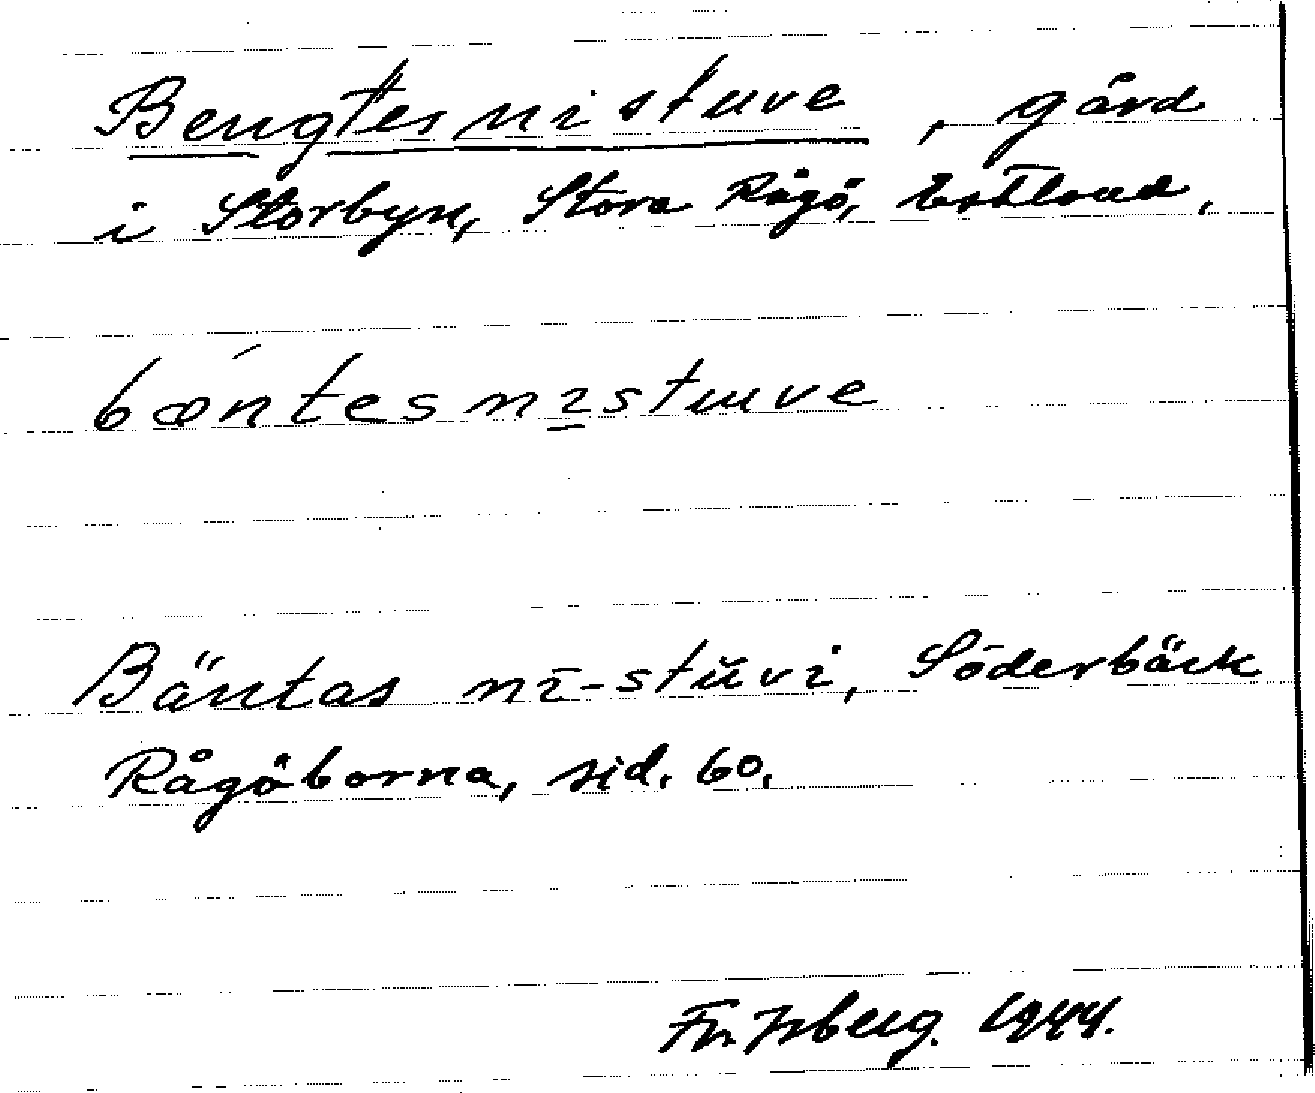 Bengtes ni stuve, gård
i Storbyn, Stora Rågö, Estland.
bǿntes nı̱stuve
Bäntas nī-stŭvi, Söderbäck
Rågöborna, sid. 60.
Fr. Isberg. 1944.